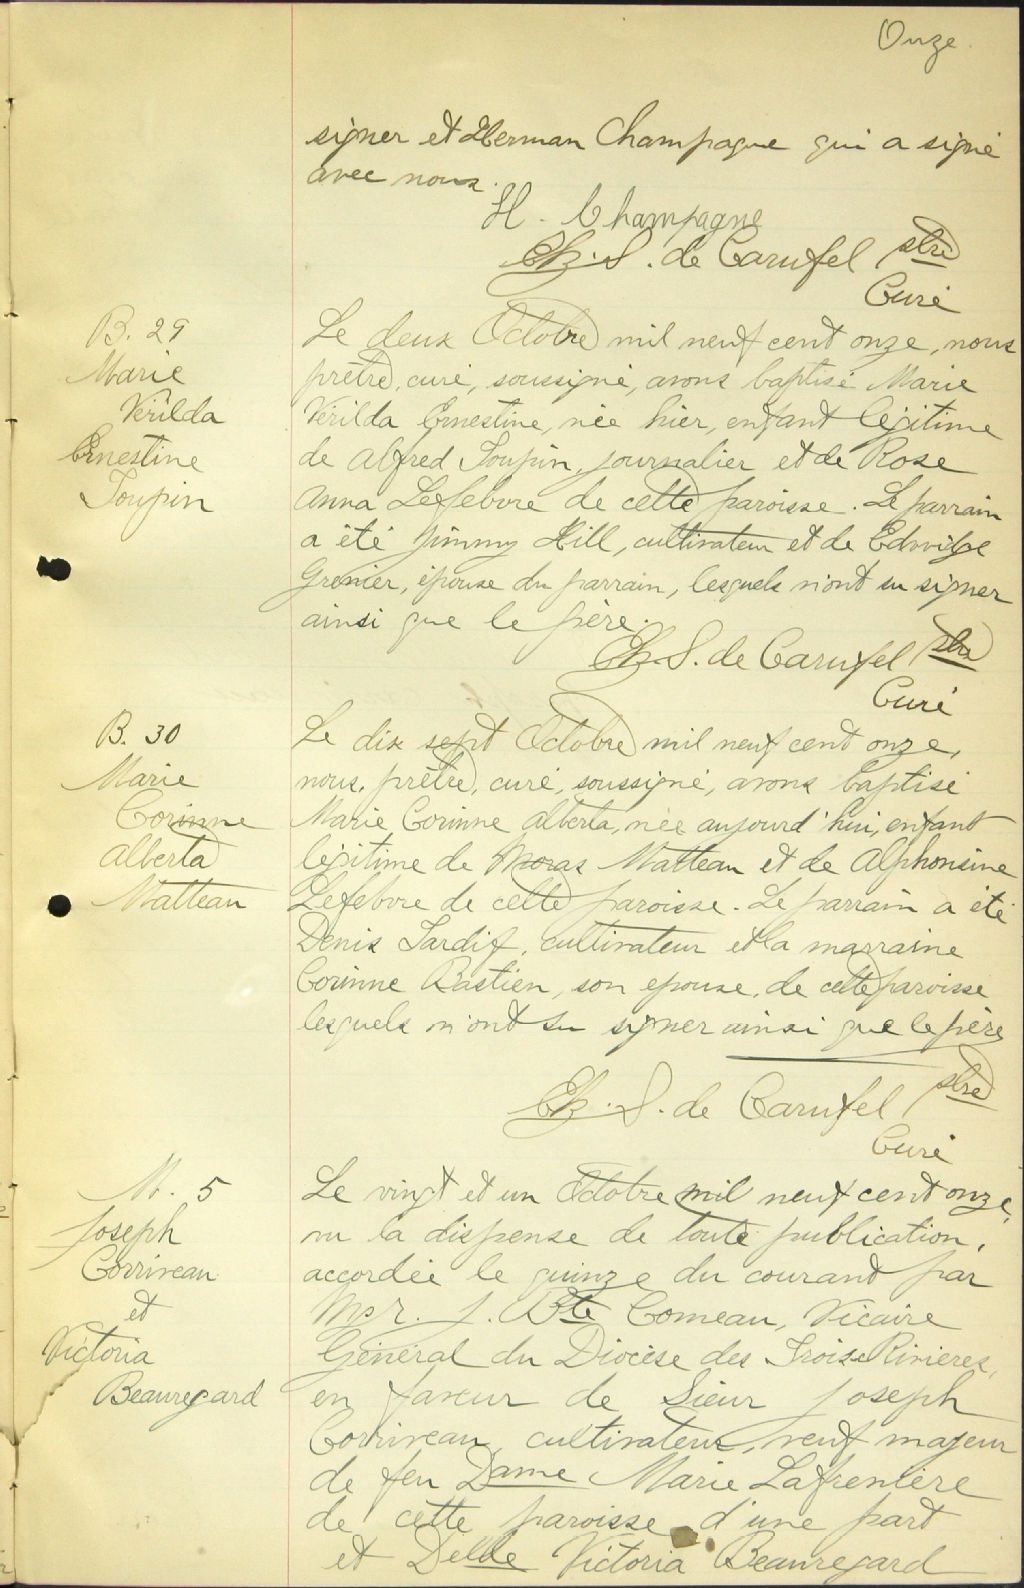 Onze.
signer et Herman Champagne qui a signé
avec nous.
H. Champagne
Chs. S. de Carufel ptre
Curé
B. 29
Marie
Vérilda
Ernestine
Toupin
Le deux Octobre mil neuf cent onze, nous
prêtre, curé, soussigné, avons baptisé Marie
Vérilda Ernestine, née hier, enfant légitime
de Alfred Toupin, journalier et de Rose
Anna Lefebvre de cette paroisse. Le parrain
a été Jimmy Hill, cultivateur et de Edwidge
Grenier, épouse du parrain, lesquels n'ont su signer
ainsi que le père.
Chs. S. de Carufel ptre
Curé
B. 30
Marie
Corinne
Alberta
Matteau
Le dix sept Octobre mil neuf cent onze,
nous, prêtre, curé, soussigné, avons baptisé
Marie Corinne Alberta, née aujourd'hui, enfant
légitime de Matteau et de Alphonsine
Lefebvre de cette paroisse. Le parrain a été
Denis Tardif, cultivateur et la marraine
Corinne Bastien, son epouse, de cette paroisse
lesquels n'ont su signer ainsi que le père
Chs. S. de Carufel ptre
Curé
M. 5
Joseph
Corriveau
et
Victoria
Beauregard
Le vingt et un Octobre mil neuf cent onze,
vu la dispense de toute publication,
accordée le quinze du courant par
Mgr. J. Bte Comeau, Vicaire
Général du Diocèse des Trois Rivieres,
en faveur de Sieur Joseph
Corriveau, cultivateur, veuf majeur
de feu Dame Marie Lafrenière
de cette paroisse d'une part
et Delle Victoria Beauregard